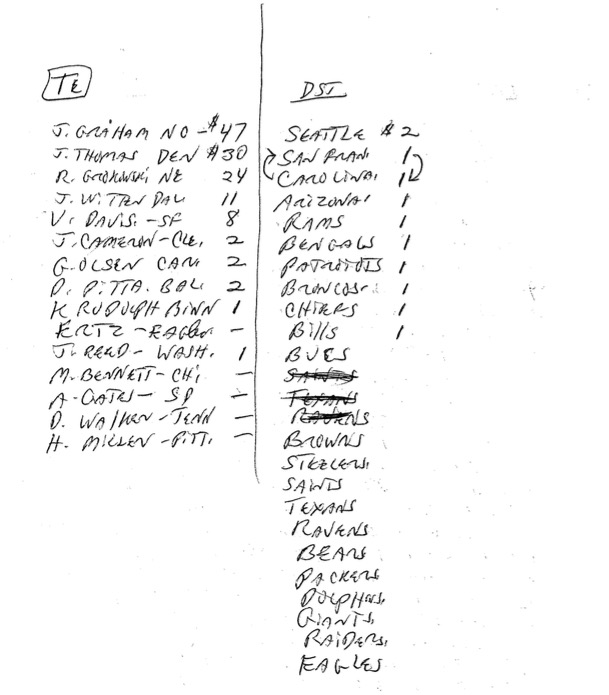 TE
J. GRAHAM NO - $47
J. THOMAS DEN $30
R. GRONKOWSKI NE 24
J. WITTEN DAL 11
V. DAVIS. - SF 8
J. CAMERON - CLE. 2
G. OLSEN CAR. 2
D. PITTA. BAL 2
K RUDOLPH MINN 1
ERTZ - EAGLES -
J. REED - WASH. 1
M. BENNETT - CHI. -
A. GATES - SD -
D. WALKER - TENN -
H. MILLER - PITT. -
DST
SEATTLE $2
SAN FRAN. 1
CAROLINA. 1
ARIZONA. 1
RAMS 1
BENGALS 1
PATRIOTS 1
BRONCOS - 1
CHIEFS 1
BILLS 1
BUCS
SAINTS
TEXANS
RAVENS
BROWNS
STEELERS.
SAINTS
TEXANS
RAVENS
BEARS
PACKERS
DOLPHINS.
GIANTS.
RAIDERS.
EAGLES